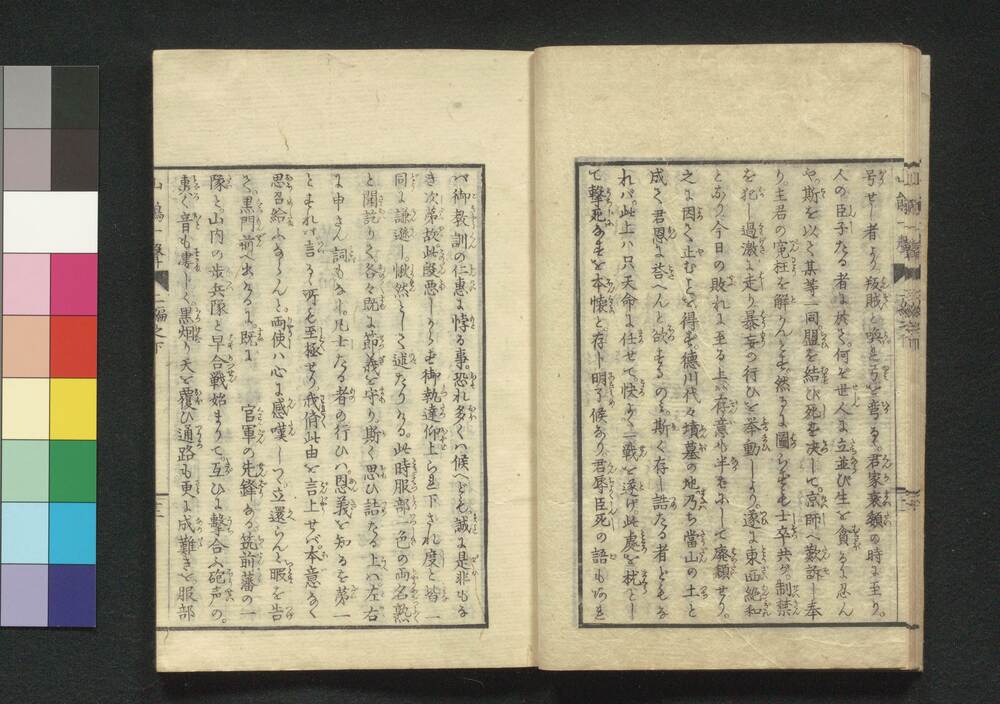 号せし者より叛賊と喚と弓を弯る。君家衰頽の時に至り。
人の臣子たる者に於て。何を世人に立並び生を貪るに忍ん
や。斯を以て某等一同盟を結び死を決して。京師へ歎訴し奉
り。主君の冤枉を解んとす。然るに圖らずも士卒共が。制禁
を犯し過激に走り暴妄の行ひを挙動しより。遂に東西絶和
となり今日の敗れに至る上は存意も半にして廃頽せり。
之に因て止むを得ず徳川代々墳墓の地乃ち當山の土と
成て君恩に荅へんと欲するのミ。斯く存し詰たる者どもな
れバ。此上ハ只天命に任せて快よく一戦を遂げ此處を枕とし
て撃死なすを本懐と存ト明了候なり。君辱臣死の語もあれ
バ御教訓の仁恵に悖る事。恐れ多くハ候ども。誠に是非もな
き次第故此段悪しからず御執達仰上られ下され度と皆一
同に謙遜し。愀然として述たりける。此時服部一色の両名熟
と聞訖りて各々既に節義を守り斯く思ひ詰たる上ハ左右
に申さん詞もなし。凡士たる者の行ひハ。恩義を知るを第一
とすれバ言るゝ所も至極せり我儕此由を言上せバ本意なく
思召給ふならんと。両使ハ心に感嘆しつゝ立還らんと暇を告
て。黒門前へ出けるに。既に 官軍の先鋒なる。筑前藩の一
隊と山内の歩兵隊と早合戦始まりて。互ひに撃合ふ砲声の。
轟く音も凄しく黒烟り天を覆ひ通路も更に成難きを服部